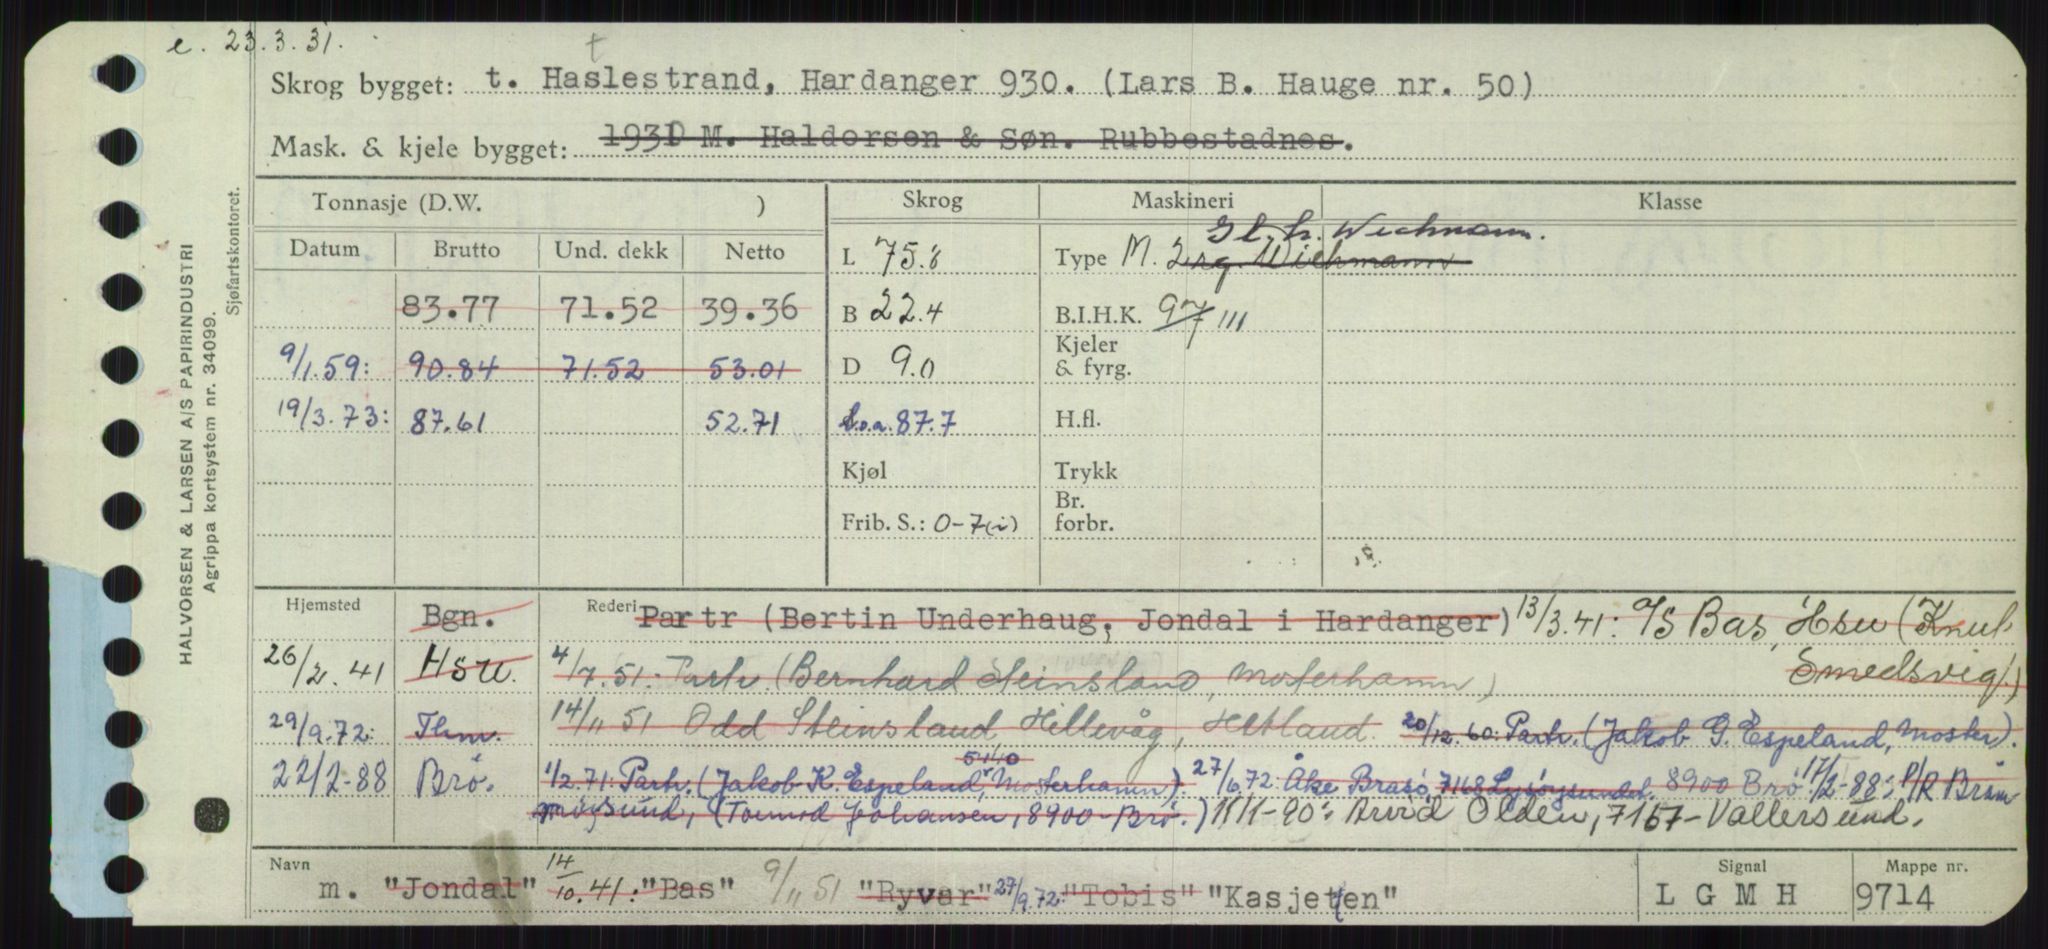 e. 23.3.31.
t
Skrog bygget: t. Haslestrand, Hardanger 930. (Lars B. Hauge nr. 50)
Mask. & kjele bygget: 193D M. Haldorsen & Søn. Rubbestadnes.
Tonnasje (D.W. ) Skrog Maskineri Klasse
Datum Brutto Und. dekk Netto L 75.8 Type M. 2 rg. Wichmann Gl. h. Wichmann.
83.77 71.52 39.36 B 22.4 B.I.H.K. 97/7 III
9/1.59: 90.84 71.52 53.01 D 9.0 Kjeler & fyrg.
19/3.73: 87.61 52.71 L.o.a. 87.7 H.fl.
Kjøl Trykk
Frib. S.: 0-7(i) Br. forbr.
Hjemsted Bgn. Rederi Partr (Bertin Underhaug, Jondal i Hardanger) 13/3.41: A/S Bas, Hsu (Knut
26/2.41 Hsu. 4/7.51: Partr. (Bernhard Steinsland, Mosterhamn) Smedsvig.)
29/9.72: Thm. 14/11 51 Odd Steinsland Hillevåg, Hetland. 20/12.60: Partr. (Jakob G. Espeland, Moster).
5440
22/2-88 Brö. 1/2.71: Partr. (Jakob K. Espeland, Mosterhamn). 27/6.72: Åke Brasö, 7168 Lysöysundet. 8900 Brö 17/2-88: P/R Bröm
möysund, (Tormod Johansen, 8900-Brö.) 11/1-90: Arvid Olden, 7167-Vallersund.
Navn m. "Jondal" 14/10.41: "Bas" 9/11 51 "Ryvar" 27/9.72: "Tobis" "Kasjetten" Signal LGMH Mappe nr. 9714
HALVORSEN & LARSEN A/S PAPIRINDUSTRI
Agrippa kortsystem nr. 34099.
Sjøfartskontoret.